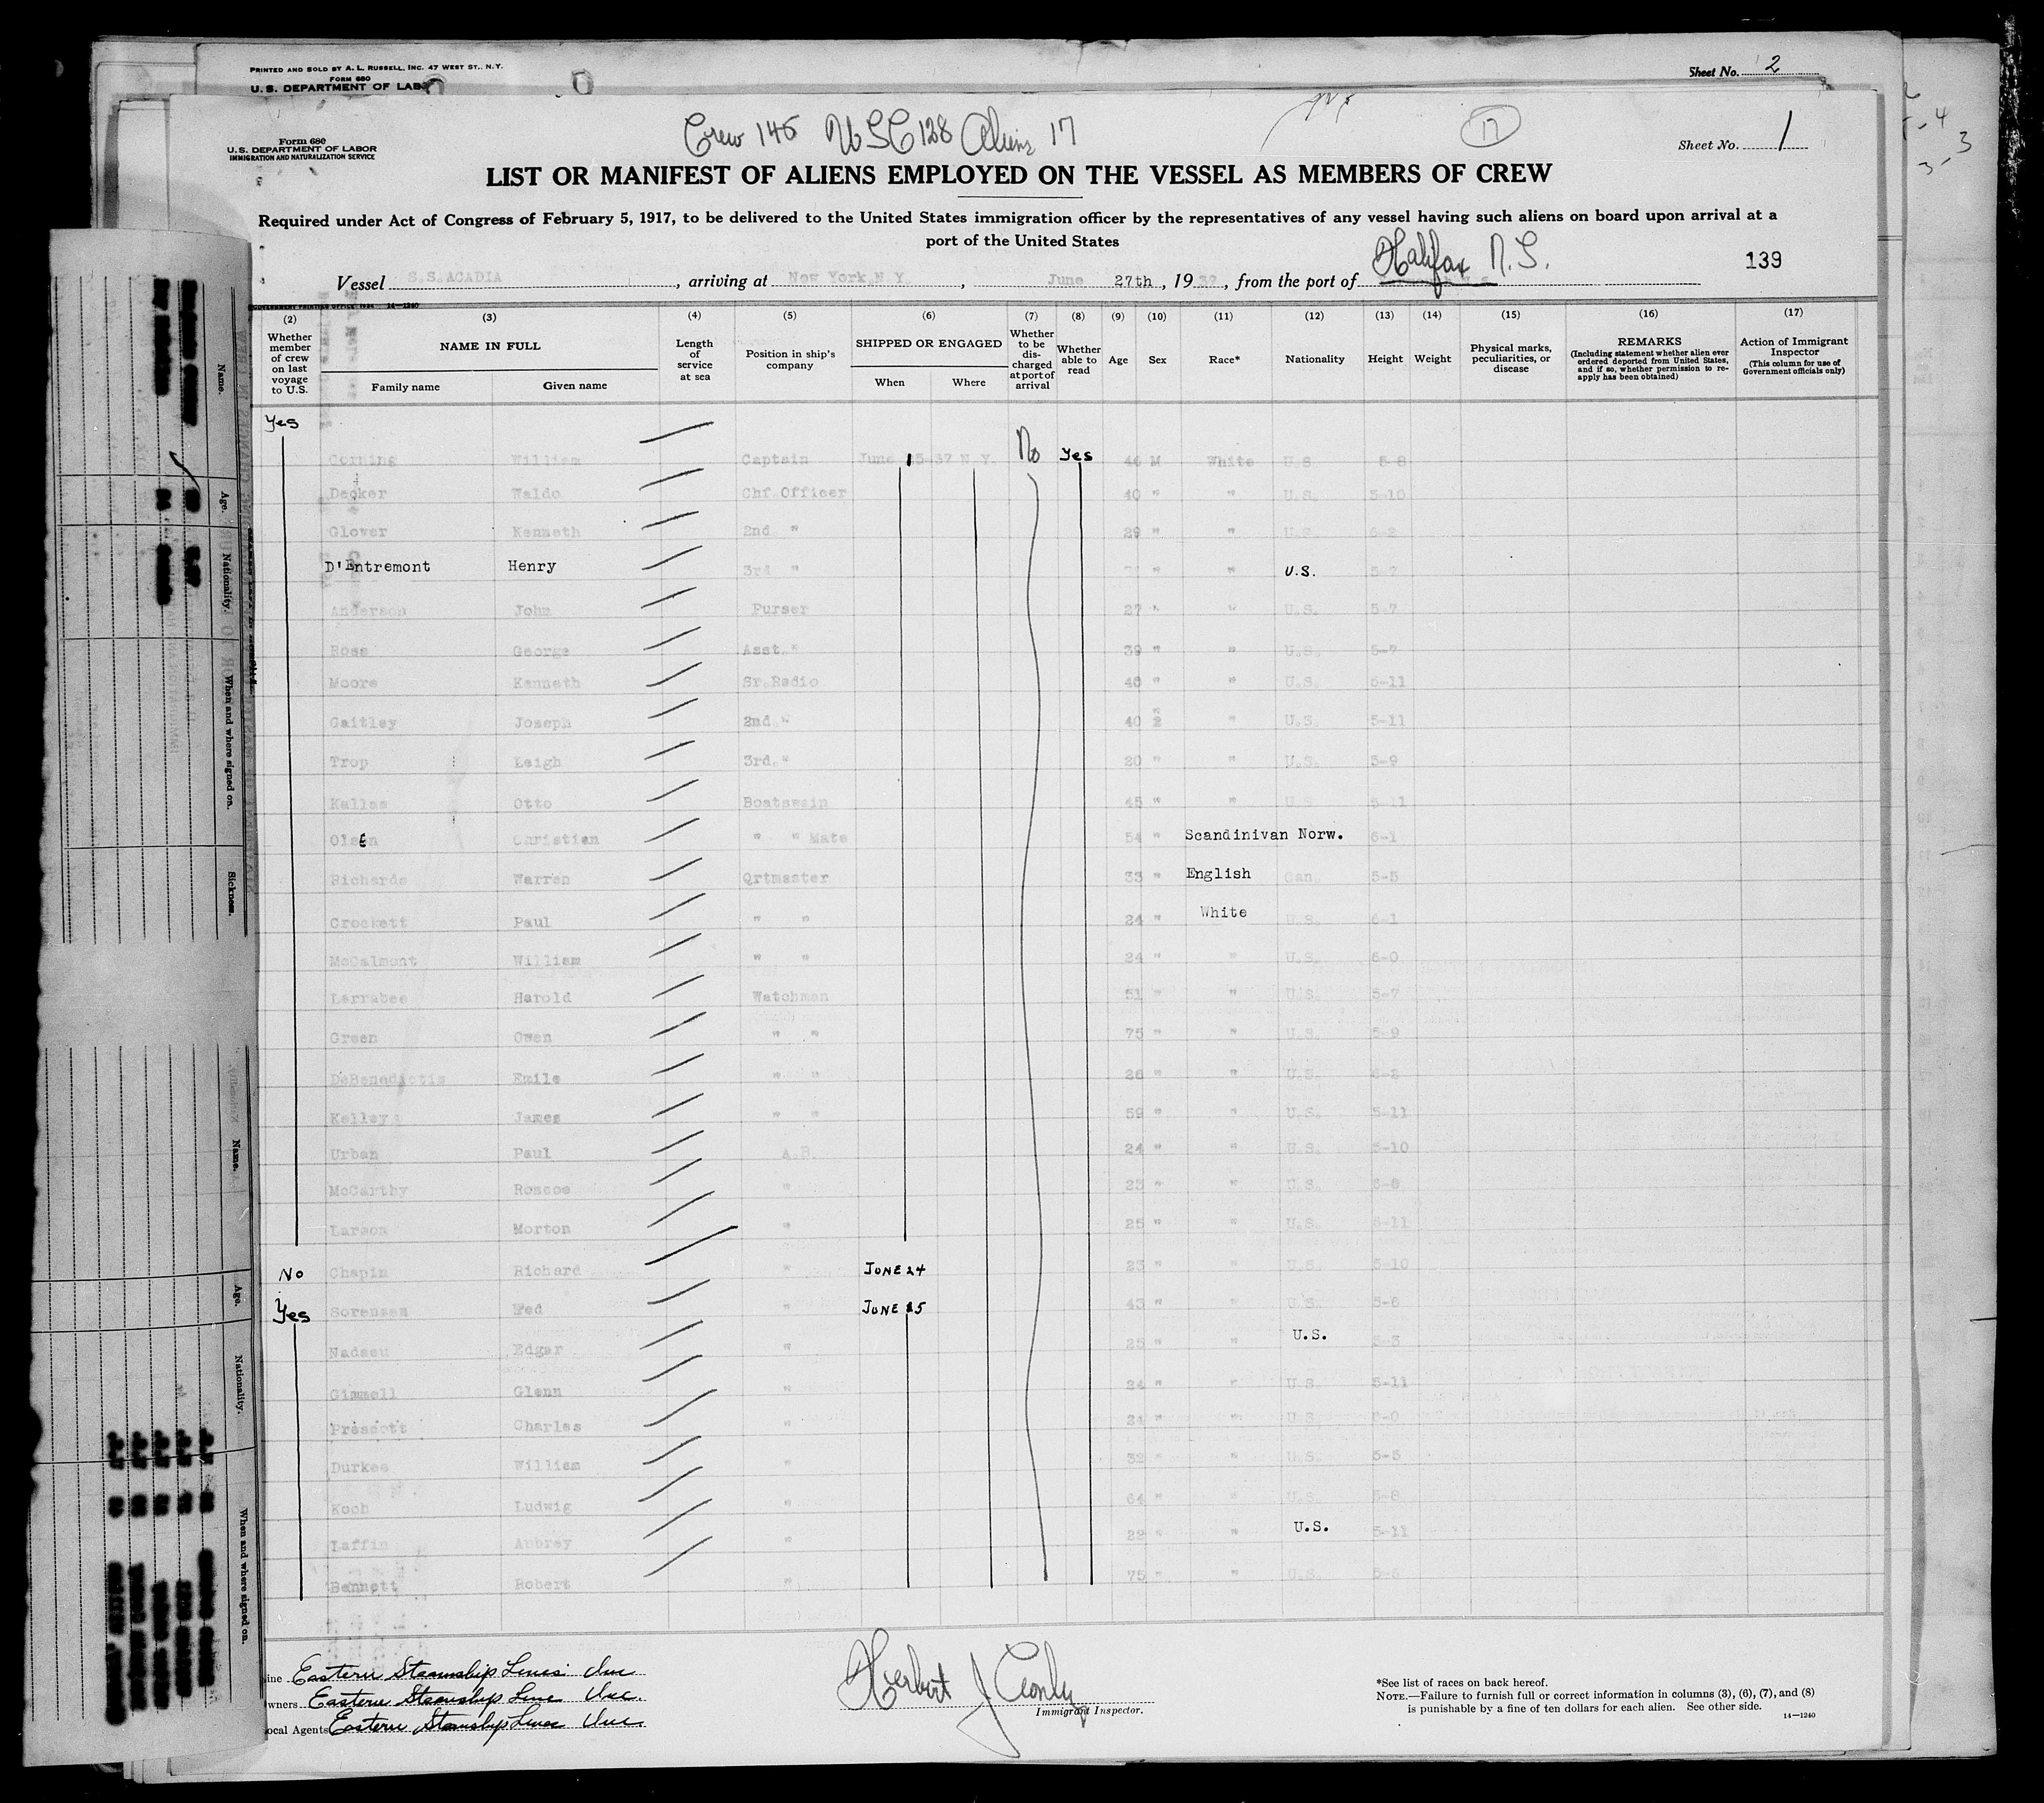 PRINTED AND SOLD BY A. L. RUSSELL, INC. 47 WEST ST., N.Y.
FORM 680
U. S. DEPARTMENT OF LAB
Sheet No. 2
Crew 145 USC 128 Aliens 17
17
Form 680
U. S. DEPARTMENT OF LABOR
IMMIGRATION AND NATURALIZATION SERVICE
Sheet No. 1
LIST OR MANIFEST OF ALIENS EMPLOYED ON THE VESSEL AS MEMBERS OF CREW
Required under Act of Congress of February 5, 1917, to be delivered to the United States immigration officer by the representatives of any vessel having such aliens on board upon arrival at a
port of the United States
139
Vessel S.S.ACADIA, arriving at New York,N.Y, June 27th, 1937, from the port of Halifax N.S.
GOVERNMENT PRINTING OFFICE 14—1240
(2) (3) (4) (5) (6) (7) (8) (9) (10) (11) (12) (13) (14) (15) (16) (17)
Whether member of crew on last voyage to U.S. NAME IN FULL Family name Given name Length of service at sea Position in ship's company SHIPPED OR ENGAGED When Where Whether to be discharged at port of arrival Whether able to read Age Sex Race* Nationality Height Weight Physical marks, peculiarities, or disease REMARKS (Including statement whether alien ever ordered deported from United States, and if so, whether permission to reapply has been obtained) Action of Immigrant Inspector (This column for use of Government officials only)
Yes Corning William Captain June 15-37 N.Y. No Yes 46 M White U.S. 5-8
Decker Waldo Chf.Officer 40 " " U.S. 5-10
Glover Kenneth 2nd " 29 " " U.S. 6-2
D'Entremont Henry 3rd " " " U.S. 5-7
Anderson John Purser 27 " " U.S. 5-7
Ross George Asst." 39 " " U.S. 5-7
Moore Kenneth Sr.Radio 40 " " U.S. 5-11
Gaitley Joseph 2nd." 40 " " U.S. 5-11
Trop Leigh 3rd." 20 " " U.S. 5-9
Kallas Otto Boatswain 45 " " U.S. 5-11
Olsen Christian " " Mate 54 " Scandinivan Norw. 6-1
Richards Warren Qrtmaster 33 " English Can. 5-5
Crockett Paul " " 24 " White U.S. 6-1
McCalmont William " " 24 " " U.S. 6-0
Larrabee Harold Watchman 51 " " U.S. 5-7
Green Owen " " 75 " " U.S. 5-9
DeBenedictis Emile " " 26 " " U.S. 6-2
Kelley James " " 59 " " U.S. 5-11
Urban Paul A.B. 24 " " U.S. 5-10
McCarthy Roscoe " 23 " " U.S. 5-8
Larson Morton " 25 " " U.S. 5-11
No Chapin Richard " JUNE 24 23 " " U.S. 5-10
Yes Sorensen Fed " JUNE 25 43 " " U.S. 5-6
Nadeau Edgar " 25 " " U.S. 5-3
Gimmell Glenn " 24 " " U.S. 5-11
Prescott Charles " 24 " " U.S.
Durkee William " 32 " " U.S. 5-5
Koch Ludwig " 64 " " U.S. 5-8
Laffin Aubrey " 22 " " U.S. 5-11
Bennett Robert " 75 " " U.S.
ine Eastern Steamship Lines Inc
wners Eastern Steamship Line Inc.
ocal Agents Eastern Steamship Lines Inc.
Herbert J
Immigrant Inspector.
*See list of races on back hereof.
NOTE.—Failure to furnish full or correct information in columns (3), (6), (7), and (8)
is punishable by a fine of ten dollars for each alien. See other side.
14—1240
Name.
Age.
Nationality.
When and where signed on.
Sickness.
Name.
Age.
Nationality.
When and where signed on.